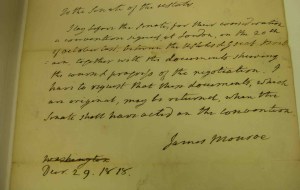 To the Senate of the UStates
I lay before the Senate, for their consideration
a convention signed at London, on the 20th
of october last between the UStates & Great
together with the documents shewing
the progress of the negotiation. I
have to request that these documents, which
are original, may be returned, when the
Senate shall have acted on the convention
James Monroe
Washington
Decr 29. 1818.